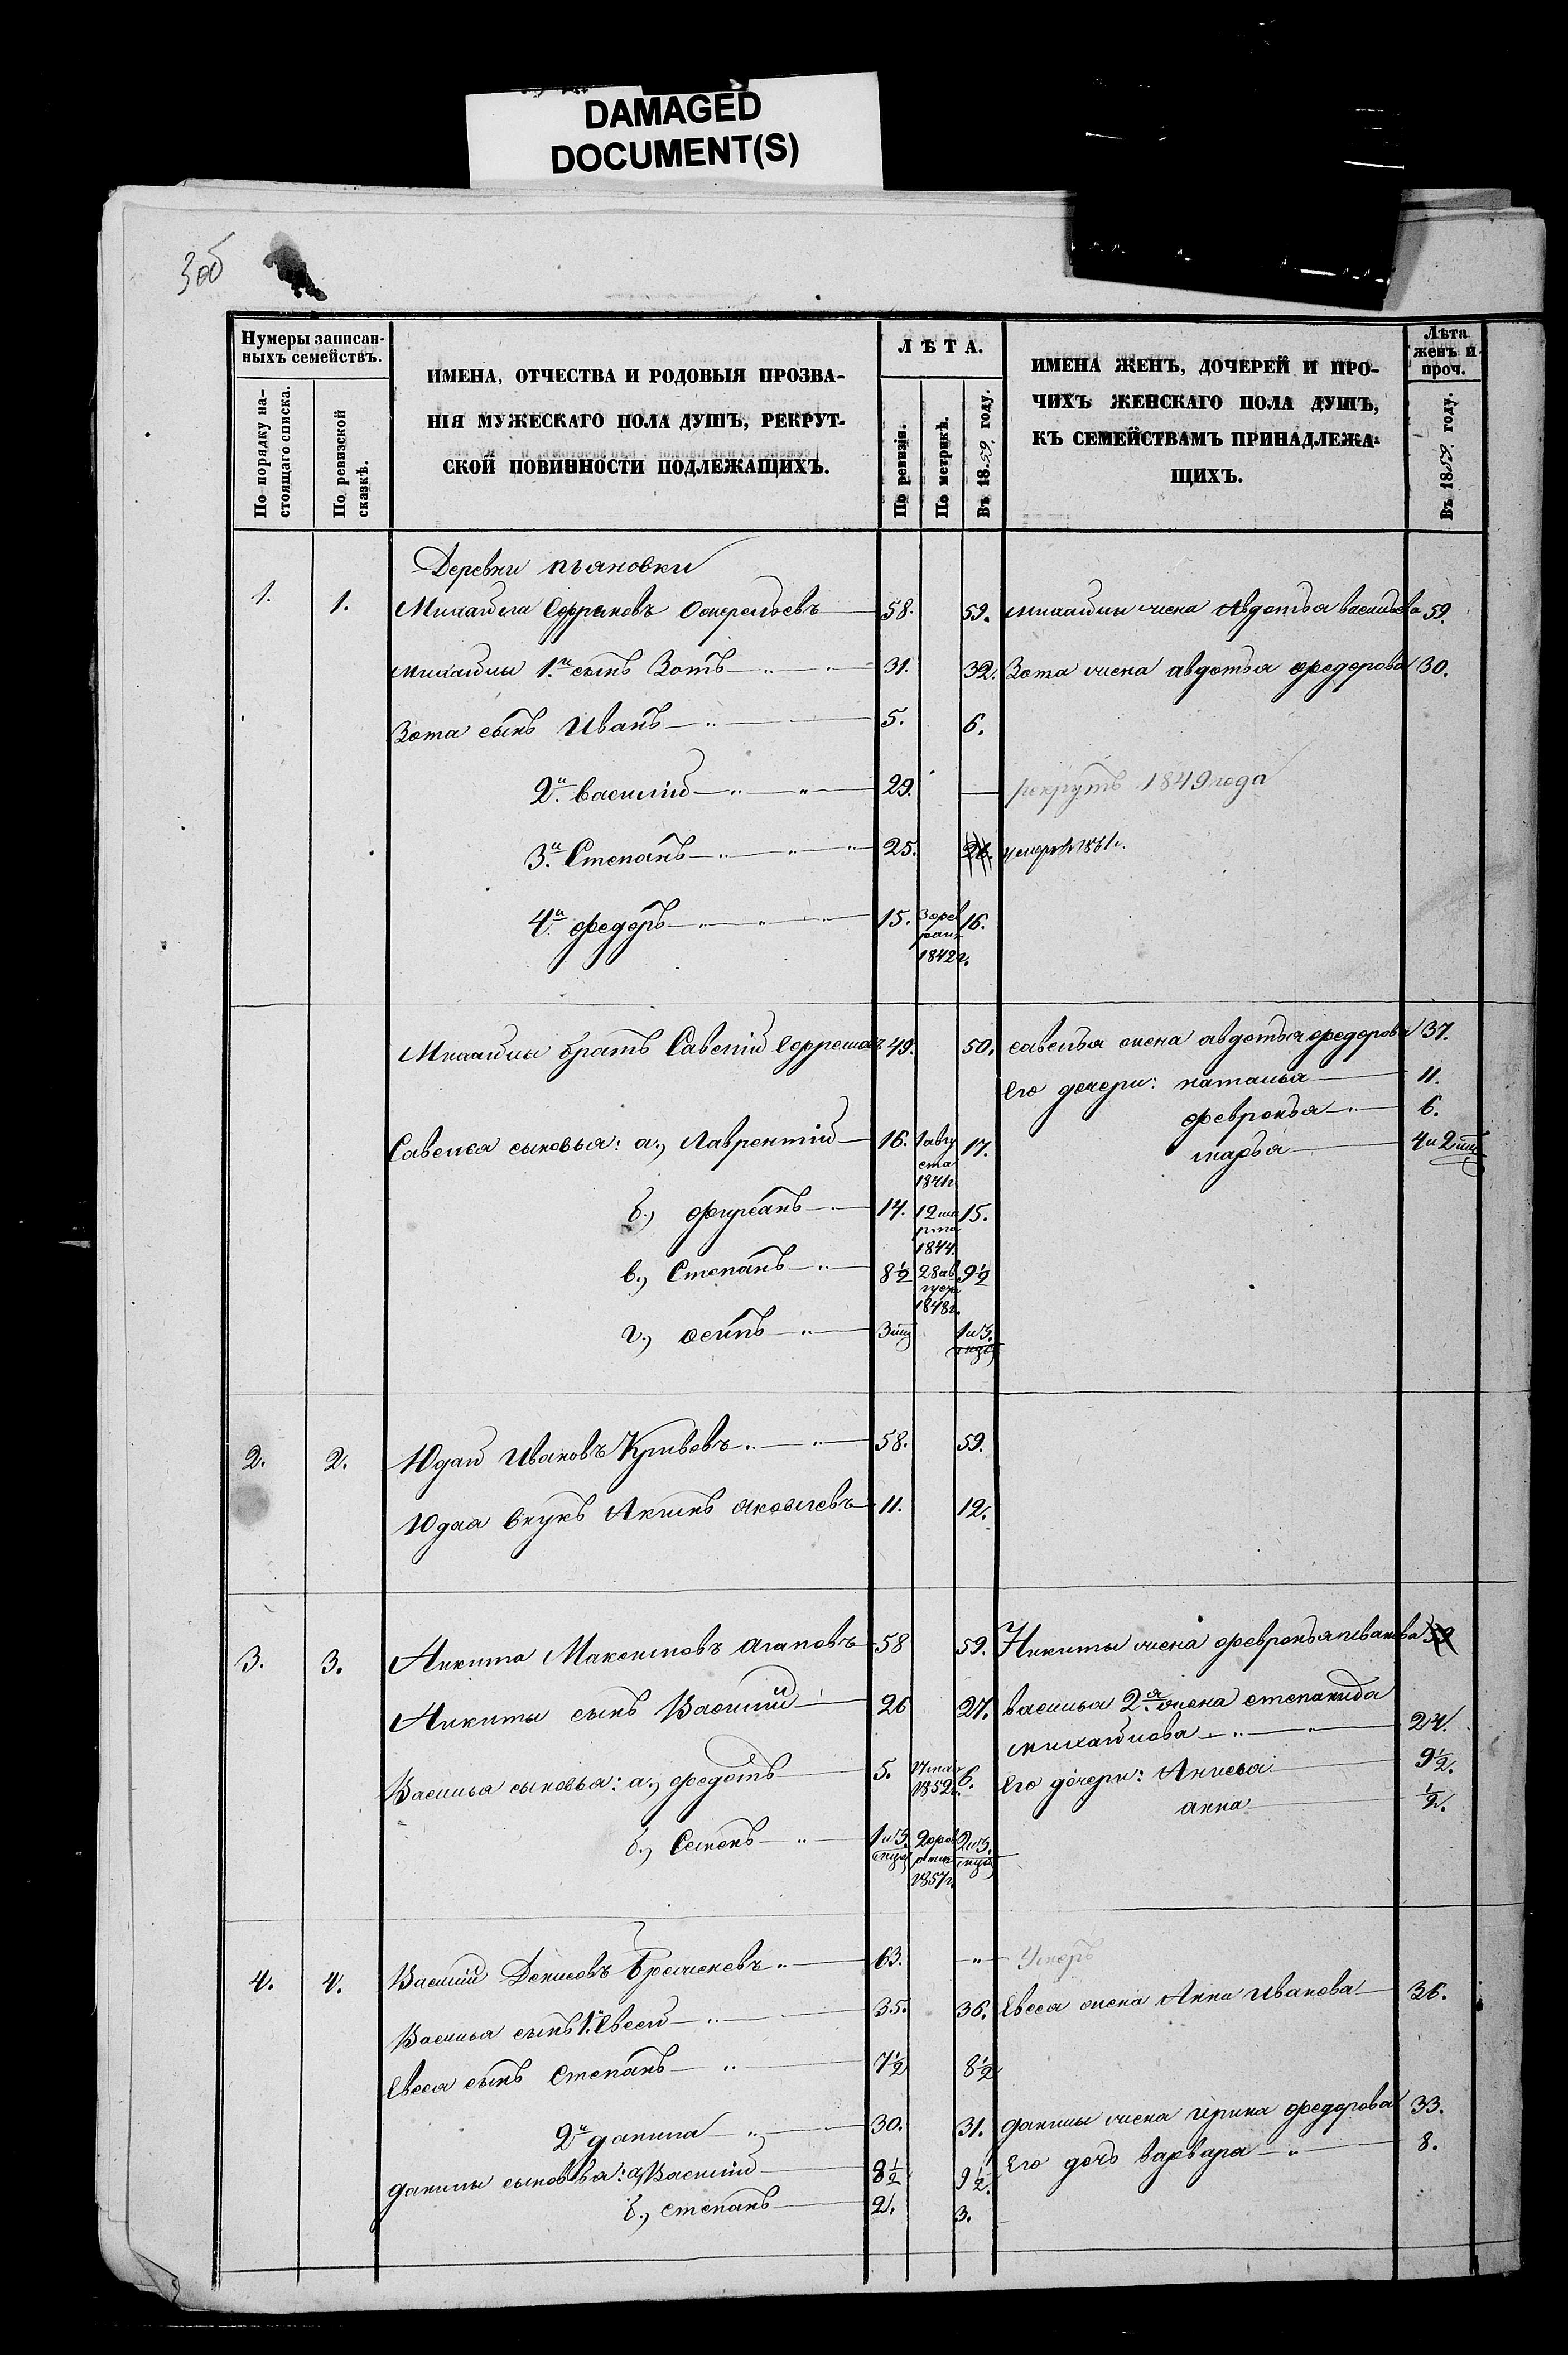 DAMAGED
DOCUMENT(S)
3об
Нумеры записан-
ныхъ семействъ.
По порядку на-
стоящаго списка.
По ревизской
сказкѣ.
ИМЕНА, ОТЧЕСТВА И РОДОВЫЯ ПРОЗВА-
НІЯ МУЖЕСКАГО ПОЛА ДУШЪ, РЕКРУТ-
СКОЙ ПОВИННОСТИ ПОДЛЕЖАЩИХЪ.
ЛѢТА.
По ревизіи.
По метрикѣ.
Въ 1859. году.
ИМЕНА ЖЕНЪ, ДОЧЕРЕЙ И ПРО-
ЧИХЪ ЖЕНСКАГО ПОЛА ДУШЪ,
КЪ СЕМЕЙСТВАМЪ ПРИНАДЛЕЖА-
ЩИХЪ.
Лѣта
женъ и
проч.
Въ 1859. году.
Деревни пьяновки
1. 1. Михайла 58. 59. михайлы жена Авдотья васильева 59.
михайлы 1й. сынъ Зотъ 31. 32. Зота жена авдотья федорова 30.
Зота сынъ Иванъ 5. 6.
2й. василій 29. — рекрутъ 1849 года
3й. Степанъ 25. 26. умеръ 1861г.
4й. федоръ 15. 3 фев 16.
раля
1842г.
Михайлы братъ Савелій 49. 50. савелья жена авдотья федорова 37.
Его дочери: наталья 11.
февронья 6.
Савелья сыновья: а., Лаврентій 16. 1 авгу 17. марья 4 и 2
ста
1841г.
б., фирсанъ 14. 12 ма 15.
рта
1844.
в., Степанъ 8½ 28 ав 9½
густ
1848г.
г., осипъ 3 1 и 3.
2. 2. Юдай Ивановъ Кривовъ 58. 59.
Юдая внукъ Акимъ яковлевъ 11. 12.
3. 3. Никита Максимовъ агаповъ 58 59. Никиты жена февронья иванова 59
Никиты сынъ Василий 26 27. василья 2я жена степанида
михайлова 24.
Василья сыновья: а., федотъ 5. 17 мая 6. Его дочери: Анисья 9½.
1852г. анна ½.
б., Семенъ 1 и 3. 2 фев 2 и 3.
раля
1857г.
4. 4. Василій Денисовъ 63. — Умеръ
Василья сынъ 1й. Евсей 35. 36. Евсея жена Анна Иванова 36.
Евсея сынъ Степанъ 7½ 8½
2й данила 30. 31. данилы жена ирина федорова 33.
данилы сыновья: а., Василий 8½ 9½. Его дочь варвара 8.
б., степанъ 2. 3.